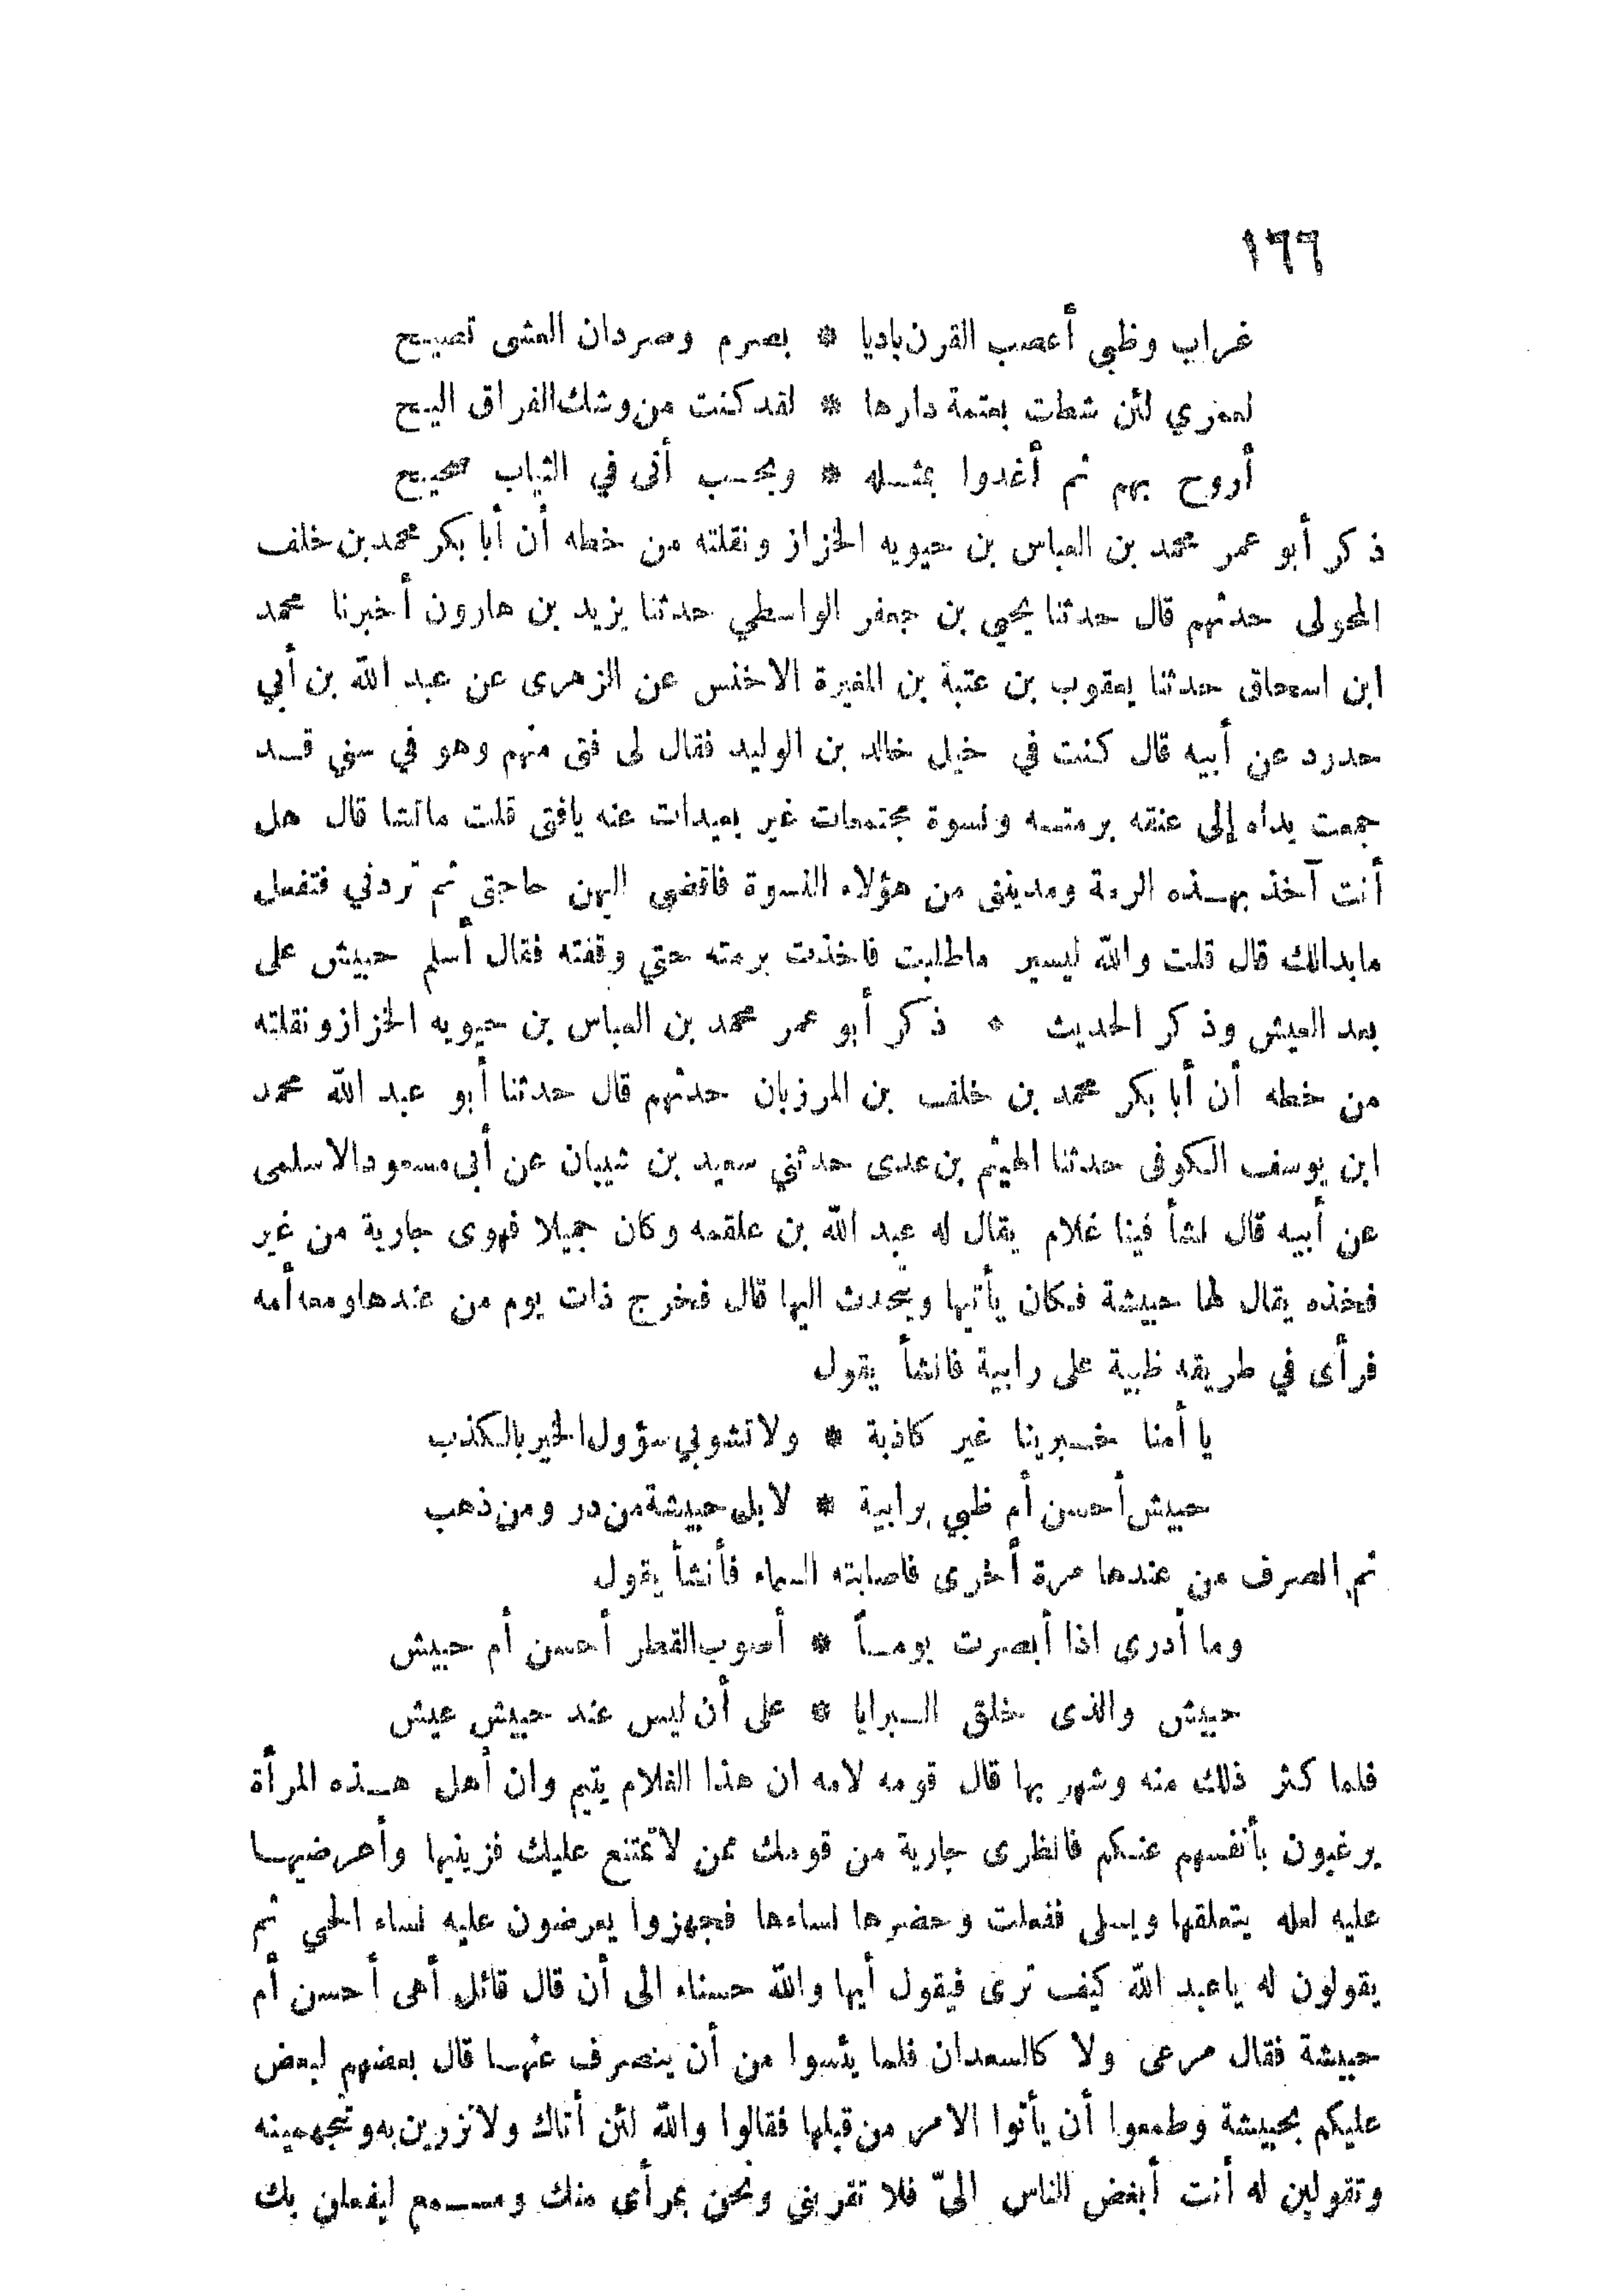 ١٦٦
غراب وظبي أعضب القرن باديا * بصرم وصردان العشى تصيح
لعمري لئن شطت بعتمة دارها * لقد كنت من وشك الفراق اليح
أروح بهم ثم أغدوا بمثله * ويحسب أنى في الثياب صحيح
ذكر أبو عمر محمد بن العباس بن حيويه الخزاز ونقلته من خطه أن أبا بكر محمد بن خلف
المحولى حدثهم قال حدثنا يحيى بن جعفر الواسطي حدثنا يزيد بن هارون أخبرنا محمد
ابن اسحاق حدثنا يعقوب بن عتبة بن المغيرة الاخنس عن الزهرى عن عبد الله بن أبي
حدرد عن أبيه قال كنت في خيل خالد بن الوليد فقال لى فتى منهم وهو في سني قد
جمعت يداه إلى عنقه برمته ونسوة مجتمعات غير بعيدات عنه يافتى قلت ماتشا قال هل
أنت آخذ بهذه الرمة ومدينى من هؤلاء النسوة فاقضى اليهن حاجتى ثم تردني فتفعل
مابدالك قال قلت والله ليسير ماطلبت فاخذت برمته حتي وقفته فقال أسلم حبيش على
بعد العيش وذكر الحديث * ذكر أبو عمر محمد بن العباس بن حيويه الخزاز ونقلته
من خطه أن أبا بكر محمد بن خلف بن المرزبان حدثهم قال حدثنا أبو عبد الله محمد
ابن يوسف الكوفى حدثنا الهيثم بن عدى حدثني سعيد بن شيبان عن أبى مسعود الاسلمى
عن أبيه قال نشأ فينا غلام يقال له عبد الله بن علقمه وكان جميلا فهوى جارية من غير
فخذه يقال لها حبيشة فكان يأتيها ويتحدث اليها قال فخرج ذات يوم من عندها ومعه أمه
فرأى في طريقه ظبية على رابية فانشأ يقول
يا أمنا خبرينا غير كاذبة * ولا تشوبي سؤول الخير بالكذب
حبيش أحسن أم ظبي برابية * لا بل حبيشة من در ومن ذهب
ثم انصرف من عندها مرة أخرى فاصابته السماء فأنشأ يقول
وما أدرى اذا أبصرت يوماً * أصوب القطر أحسن أم حبيش
حبيش والذى خلق البرايا * على أن ليس عند حبيش عيش
فلما كثر ذلك منه وشهر بها قال قومه لامه ان هذا الغلام يتيم وان أهل هذه المرأة
يرغبون بأنفسهم عنكم فانظرى جارية من قومك ممن لا تمتنع عليك فزينيها وأعرضيها
عليه لعله يتعلقها ويسلى ففعلت وحضرها نساءها فجهزوا يعرضون عليه نساء الحي ثم
يقولون له ياعبد الله كيف ترى فيقول أيها والله حسناء الى أن قال قائل أهى أحسن أم
حبيشة فقال مرعى ولا كالسعدان فلما يئسوا من أن ينصرف عنها قال بعضهم لبعض
عليكم بحبيشة وطمعوا أن يأتوا الامر من قبلها فقالوا والله لئن أتاك ولا تزرين به وتتجهمينه
وتقولين له أنت أبغض الناس الىّ فلا تقربنى ونحن بمرأى منك ومسمع ليفعلن بك